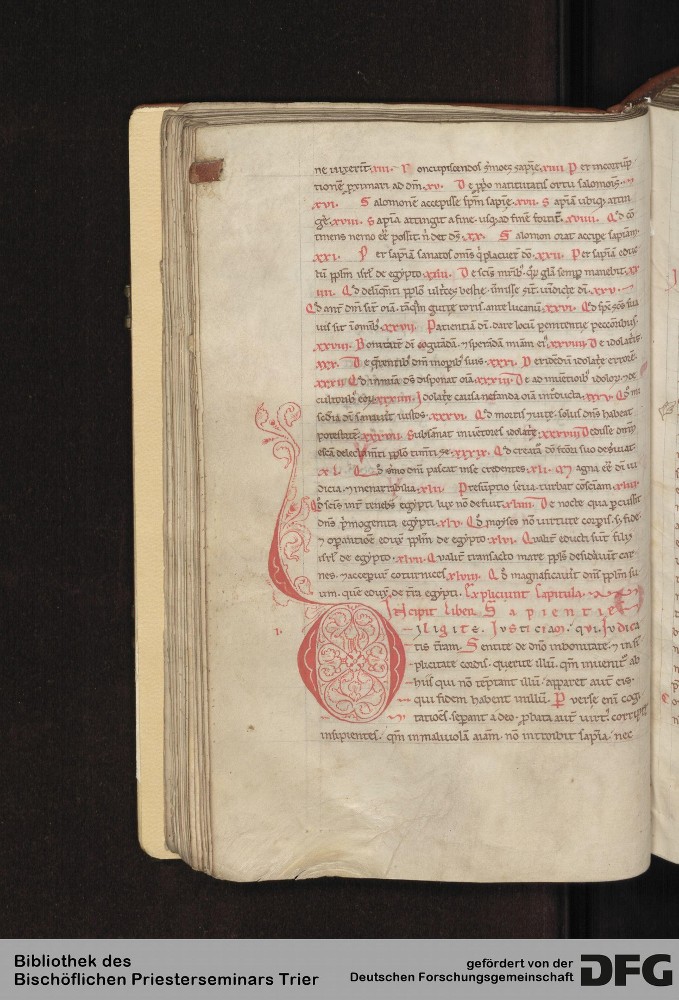 ne uixerīt. xiii. Concupiscendos s̄moes sapīe. xiiii. Per incorrup
tionē p̱ximari ad dm̄. xv. De natiuitatis ortu salomonis.
xvi. Salomonē accepisse sp̄m sapīe. xvii. Sapīa ubiq; attin
gē. xviii. Sapīa attingit a fine usq; ad finē fortit̄. xviiii. Qd̄ cō
tinens nemo eē possit n̄ det ds̄. xx. Salomon orat accipe sapīam.
xxi. Per sapīam sanatos om̄s q̄ placuer̄ dō. xxii. Per sapīa educ
tū pplm̄ isrl̄ de egypto. xxiii. De sc̄is glā semp manebit. xx
iiii. Qd̄ delinq̄nti pplō ultrices bestie
Qd̄ ant̄ dm̄ sint oīa gutte roris ante lucanū. xxvi. Qd̄
uis sit ī omnib;. xxvii. Patientiā dī dare locū penitentie peccōribus.
xxviii. Bonitatē dī cogitādā ⁊ sperādā miam ei. xxviiii. De idolatris
xxx. De q̄rentib; dm̄ suis. xxxi. Peridendū idolatre errore.
xxxii. Qd̄ ds̄ disponat oīa. xxxiii. De ad inuētionib; idolor̄ ⁊ de
cultorib; eor̄. xxxiiii. Idolatre causa nefanda oīa introducta. xxxv. Qd̄ mi
sc̄dia dī sanauit iustos. xxxvi. Qd̄ mortis ⁊ uite solus dn̄s habeat
potestatē. xxxvii. Subsānat inuētores idolatre. xxxviii. Dedisse
escā delectam̄ti pplō. xxxix. Qd̄ creatā dō fcōri suo deseruiat
xl. Qd̄ sermo dn̄i pascat in se credentes. xli. Magna eē dī iu
dicia ⁊ inenarrabilia. xlii. Presūptio seua turbat cōsciam. xliii.
Qd̄ sc̄is int̄ tenebs̄ egypti lux nō defuit. xliiii. De nocte qua pcussit
dn̄s p̄mogenita egypti. xlv. Qd̄ moyses nō uirtute corpis s; fide
⁊ opatione eduxit pplm̄ de egypto. xlvi. Qualit̄ educti sunt filii
isrl̄ de egypto. xlvii. Qualit̄ transacto mare ppl̄s desid̄auit car
nes ⁊ acceper̄ coturnices. xlviii. Qd̄ magnificauit dn̄s pplm̄ su
um, quē eduxit de t̄ra egypti. Expliciunt Capitula.
Incipit Liber Sapientie
i. Diligite Iusticiam. qui Iudica
tis t̄ram. Sentite de dn̄o in bonitate. ⁊ in si
plicitate cordis querite illū. qm̄ inuenit̄ ab
his qui nō teptant illū. apparet aut̄ eis
qui fidem habent in illū. Puerse eni cogi
tatiōes sepant a deo. pbata aut̄ uirt; corripit
insipientes. qm̄ in maliuolā aīam nō introibit sapīa. nec
Bibliothek des
Bischöflichen Priesterseminars Trier
gefördert von der
Deutschen Forschungsgemeinschaft
DFG